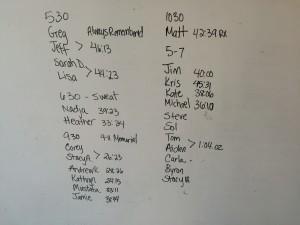 530
Greg Always Remembered
Jeff > 46:13
Sarah D
Lisa > 44:23
630 - Sweat
Nadja 39:23
Heather 33:44
930 9-11 Memorial
Corey
Stacy R > 26:23
Andrew K 28:26
Kathryn
Mustafa 33:11
Jamie
1030
Matt 42:39 RX
5-7
Jim 40:00
Kris 45:31
Kate 38:06
Michael 36:10
Steve
Sol
Tom
Aidan > 1:04:02
Carla
Byron
Stacy